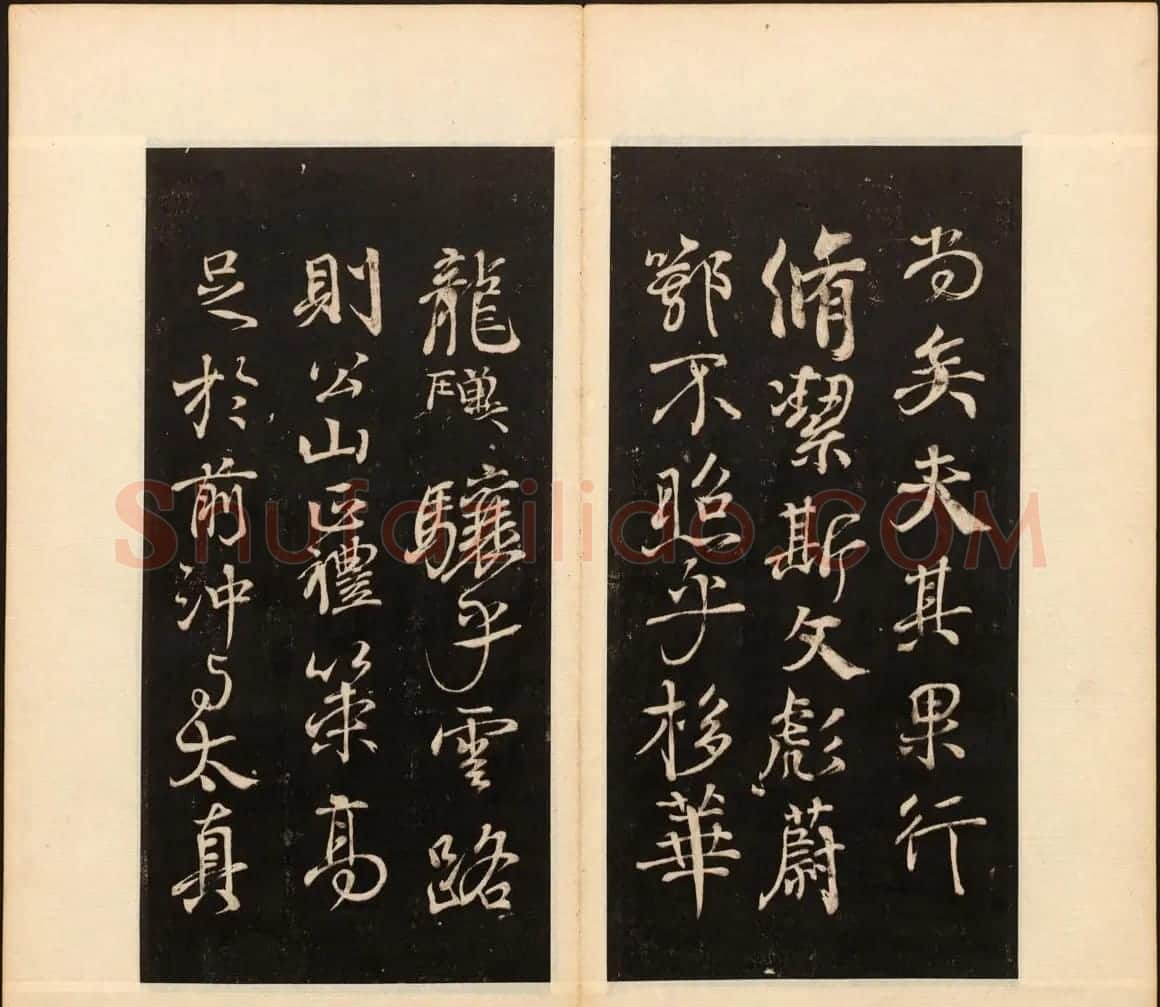 尚矣夫其果行
脩潔斯文彪蔚
鄂不照乎栘華
龍驥驤乎雲路
則公山正禮策高
足於前沖与太真
Shufaziliao.COM